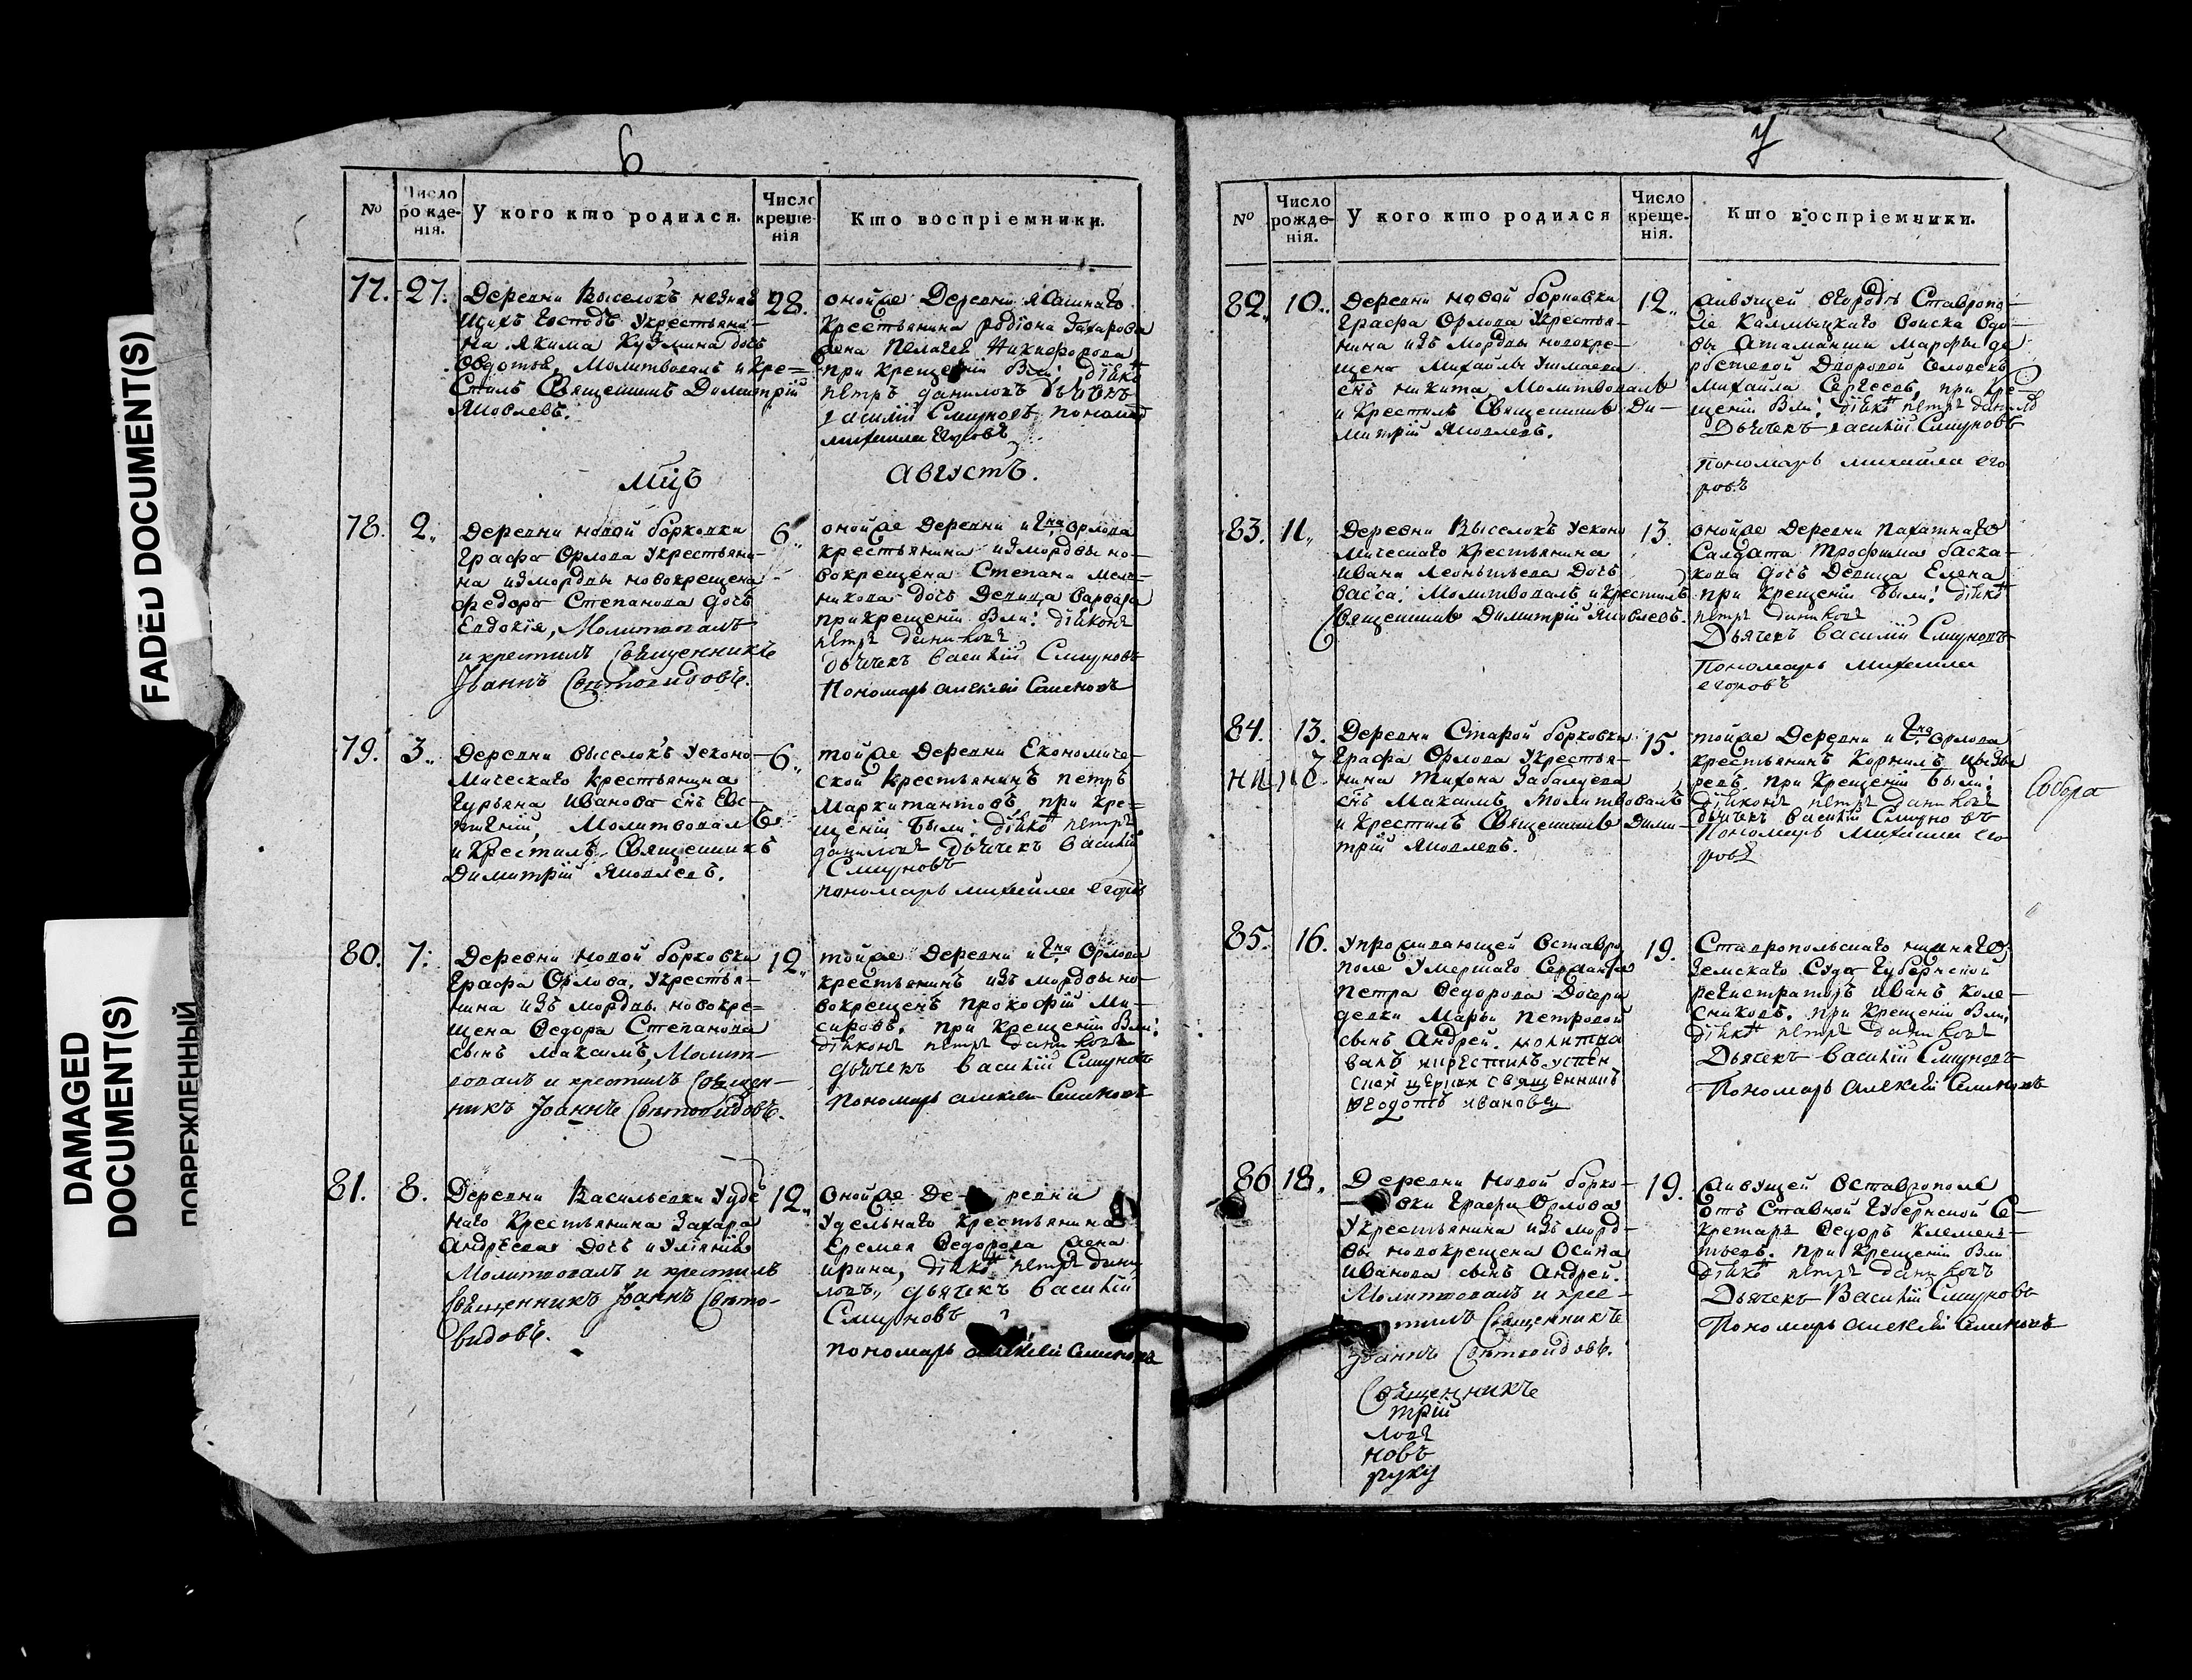 FADED DOCUMENT(S)
DAMAGED
DOCUMENT(S)
ПОВРЕЖДЕННЫЙ
6
№
Число рожде-нія.
У кого кто родился.
Число креще-нія
Кто воспріемники.
77. 27.
Деревни Выселокъ
Господъ Укрестьяни-
на Якима Кузмина дочь
Молитвовалъ и Кре=
Стилъ Священникъ Димитрій
Яковлевъ.
28.
оной же Деревни
Крестьянина родіона Захарова
жена Пелагея Никифорова
при крещеніи были: діакᵒⁿ
петръ даниловъ дьячекъ
василий Смирновъ пономарь
михаила Егоровъ
Мцъ
Августъ.
78. 2.
Деревни новой борковки
Графа Орлова Укрестьяни-
на измордвы новокрещена
федора Степанова дочь
Евдокія, Молитвовалъ
и крестилъ Священникъ
Іоаннъ Свѣтовидовъ.
6.
оной же Деревни и Гна Орлова
крестьянина измордвы но-
вокрещена Степана Мель-
никова дочь Девица варвара
прикрещеніи были: діаконъ
петръ даниловъ
дьячекъ василий Смирновъ
Пономарь алексей Семеновъ
79. 3.
Деревни выселокъ Уеконо-
Мическаго крестьянина
Гурьяна Иванова снъ Ев-
Молитвовалъ
и Крестилъ Священникъ
Димитрій Яковлевъ.
6.
той же Деревни Економиче-
ской крестьянинъ петръ
Маркитантовъ, при кре=
щеніи были: діакᵒⁿ петръ
даниловъ дьячекъ василий
Смирновъ
пономарь михайла егоровъ
80. 7.
Деревни новой борковки
Графа Орлова, Укрестья-
нина изъ мордвы новокре=
щена Федора Степанова
сынъ максимъ, Молит-
вовалъ и крестилъ Священ-
никъ Іоаннъ Свѣтовидовъ.
12.
той же Деревни и Гна Орлова
крестьянинъ изъ мордвы но-
вокрещенъ прокофій Ми-
сировъ. при крещеніи были:
діаконъ петръ даниловъ
дьячекъ василий Смирновъ
пономарь алексей Семеновъ
81. 8.
Деревни Васильевки Удѣ
наго Крестьянина Захара
Андрѣева Дочь иУліянія
Молитвовалъ и крестилъ
Священникъ Іоаннъ Свѣто-
видовъ.
12.
оной же Де- ревни
Удельнаго крестьянина
Еремея Федорова жена
ирина, діакᵒⁿ петръ дани
ловъ, дьячекъ василий
Смирновъ
пономарь алексей Семеновъ
7
№
Число рожде-нія.
У кого кто родился
Число креще-нія.
Кто воспріемники.
82. 10.
Деревни новой борковки
Графа Орлова Укрестья-
нина изъ мордвы новокре-
щена Михайлы Ушмаева
снъ никита Молитвовалъ
и крестилъ Священникъ Ди-
митрій Яковлевъ.
12.
живущей вгородѣ Ставропо-
ле Калмыцкаго войска вдо-
вы Атаманши Марфы
Дворовой человекъ
михайла Сергеевъ, при кре-
щеніи были: діакᵒⁿ петръ даниловъ
Дьячекъ василий Смирновъ
Пономарь михайла его
ровъ
83. 11.
Деревни Выселокъ Уекон
мическаго крестьянина
Ивана Леонтьева Дочь
васса. Молитвовалъ и крестилъ
Священникъ Димитрій Яковлевъ.
13.
оной же Деревни пахатнаго
Салдата Трофима баска-
кова дочь Девица Елена
при крещеніи были: діакᵒⁿ
петръ даниловъ
Дьячекъ василий Смирновъ
Пономарь михайла
егоровъ
84. 13.
Деревни Старой борковки
Графа Орлова Укрестья-
нина Тихона Забалуева
снъ Максимъ, молитвовалъ
и крестилъ Священникъ Дими-
трій Яковлевъ.
15.
той же Деревни и Гна Орлова
крестьянинъ Корнилъ
при крещеніи были:
діаконъ петръ даниловъ
дьячекъ василий Смирновъ
Пономарь михайла его
ровъ
Собора
85. 16.
Упроживающей вставро
поле Умершаго Сержанта
Петра Федорова Дочери
девки Марьи Петровой
сынъ Андрей. молитво
валъ икрестилъ успен
ской церкви священникъ
Федотъ ивановъ
19.
Ставропольскаго нижняго
Земскаго Суда Губернской
регистраторъ иванъ коле-
сниковъ. при крещеніи были,
діакᵒⁿ петръ даниловъ
Дьячекъ василий Смирновъ
Пономарь алексей Семеновъ
86 18.
Деревни новой борко-
вки Графа Орлова
Укрестьянина изъ морд-
вы новокрещена Осипа
Иванова сынъ Андрей.
Молитвовалъ и крес-
тилъ Священникъ
Іоаннъ Свѣтовидовъ.
19.
живущей вставрополе
отъ Ставной Губернской Се-
кретарь Федоръ клемен-
тьевъ. при крещеніи были
діакᵒⁿ петръ даниловъ
Дьячекъ Василий Смирновъ
Пономарь алексей Семеновъ
Священникъ
трій
ловъ
новъ
руку